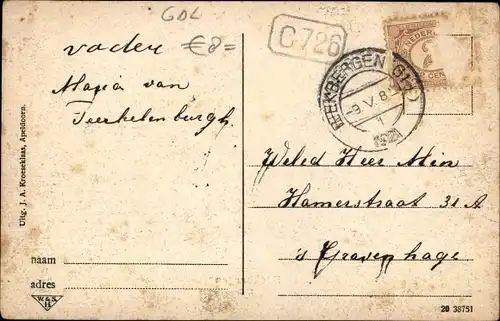 GDL
vader €8=
C-726
NEDERLAND
2
CENT
BEEKBERGEN (GLD)
9 V. 8
1
1921
Maria van
Teerkelenburgh.
Weled Heer Min
Hamerstraat 31 A
's Gravenhage
Uitg. J. A. Kroeseklaas, Apeldoorn.
naam
adres
W & S
20 38751